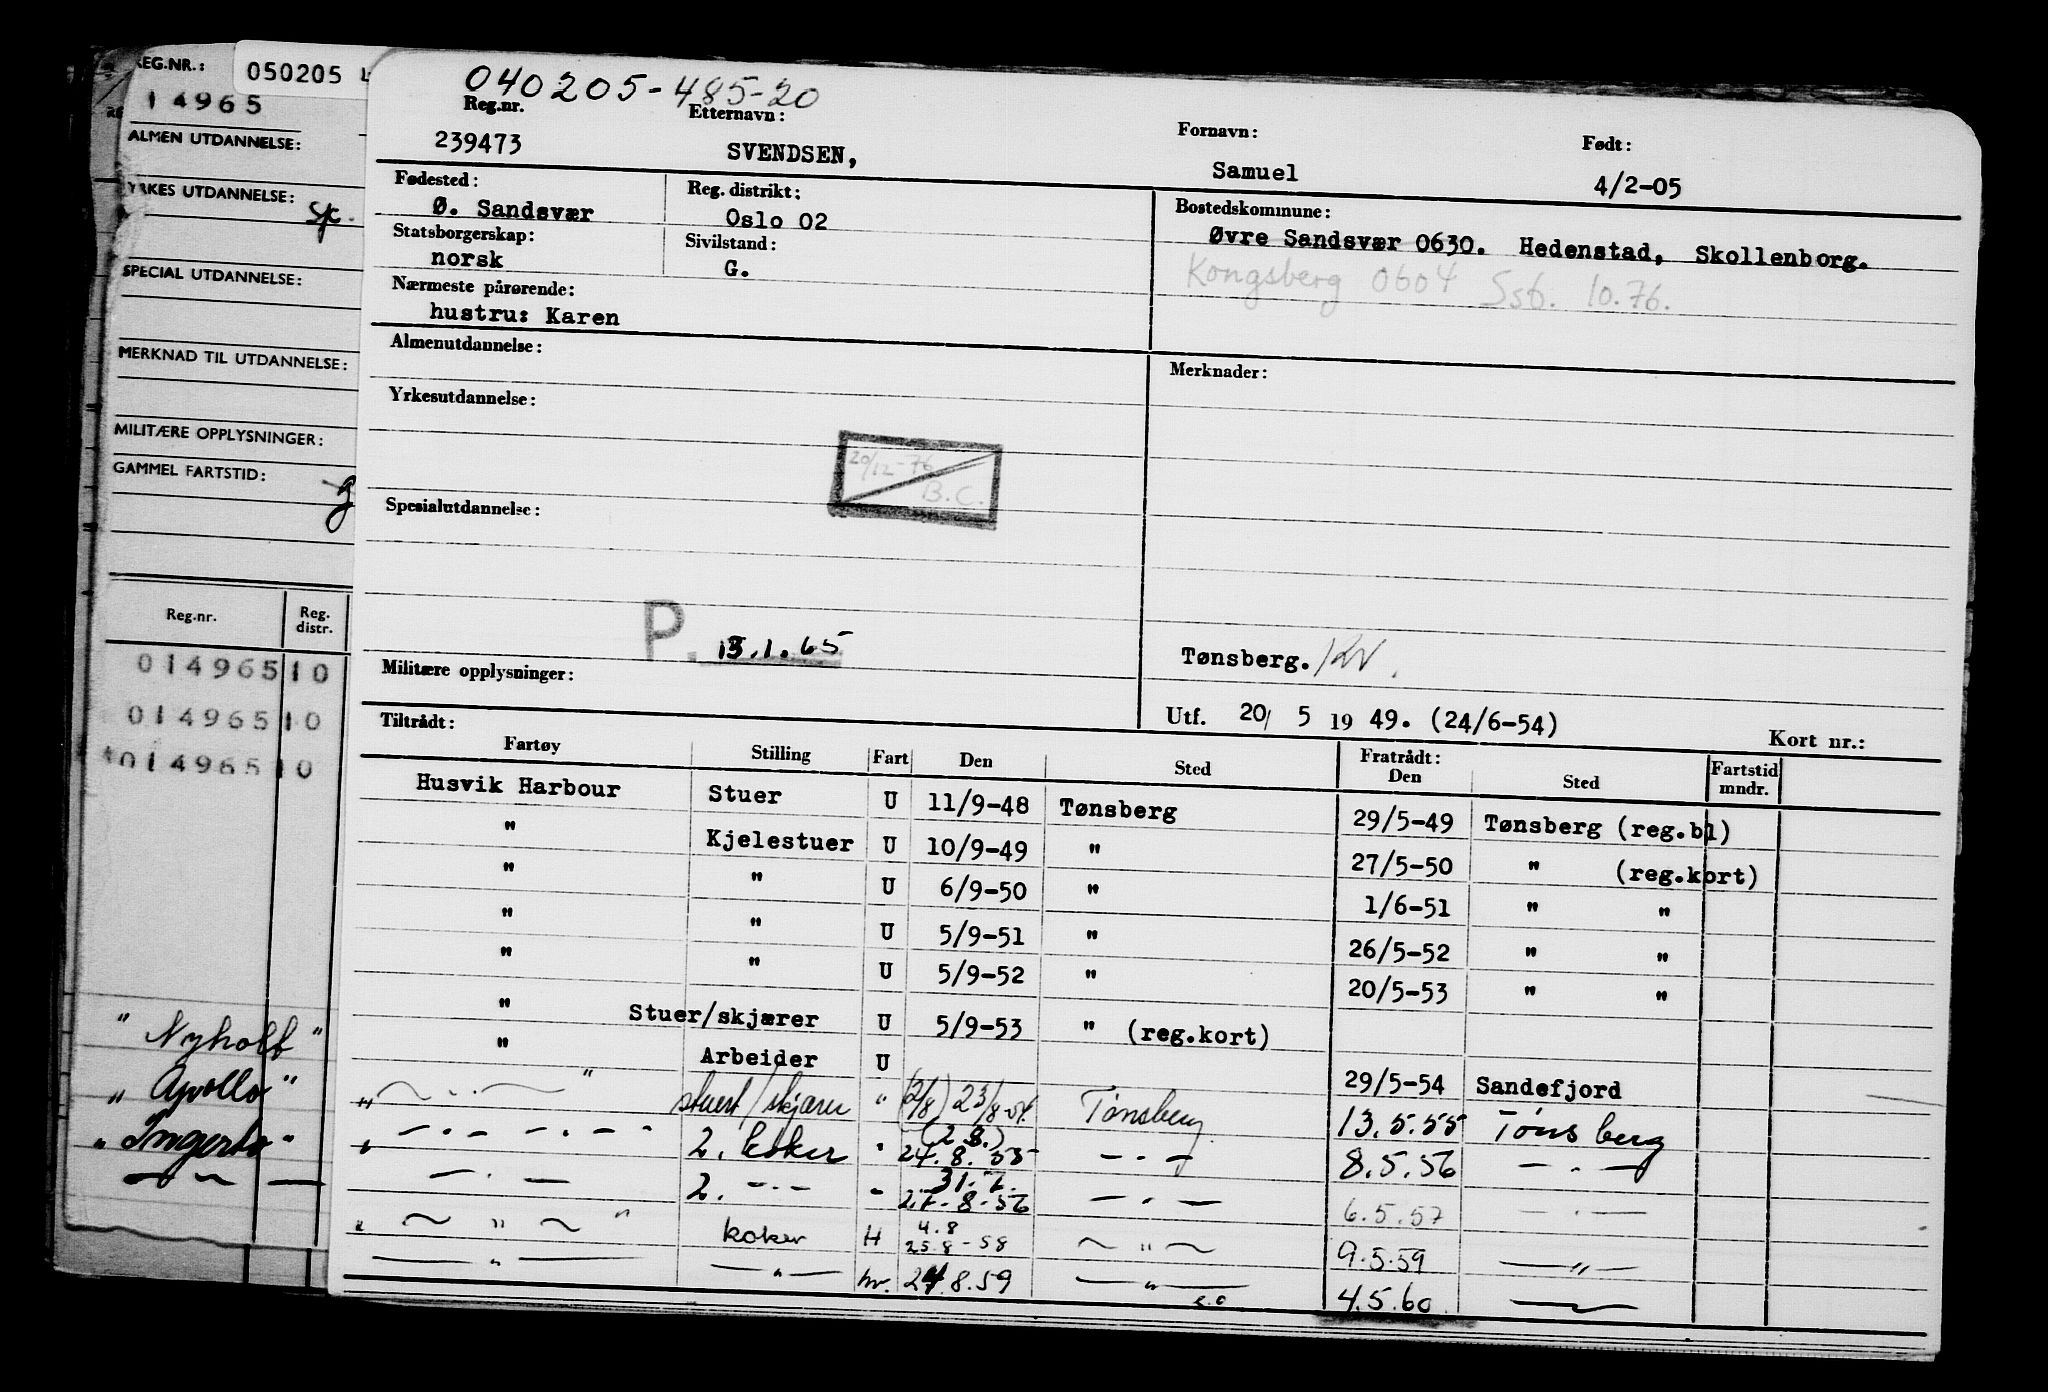 REG.NR.:
050205
14965
ALMEN UTDANNELSE:
YRKES UTDANNELSE:
SPECIAL UTDANNELSE:
MERKNAD TIL UTDANNELSE:
MILITÆRE OPPLYSNINGER:
GAMMEL FARTSTID:
Reg.nr. Reg. distr.
014965 10
014965 10
014965 10
" Nyholt "
" Apollo "
" Ingerto "
040205-485-20
Reg.nr. Etternavn: Fornavn: Født:
239473 SVENDSEN, Samuel 4/2-05
Fødested: Reg. distrikt: Bostedskommune:
Ø. Sandsvær Oslo 02 Øvre Sandsvær 0630. Hedenstad, Skollenborg.
Statsborgerskap: Sivilstand:
norsk G. Kongsberg 0604 Ssb. 10.76.
Nærmeste pårørende:
hustru: Karen
Almenutdannelse: Merknader:
Yrkesutdannelse:
20/12-76 B.C.
Spesialutdannelse:
P. 13.1.65
Tønsberg.
Militære opplysninger:
Utf. 20/ 5 19 49. (24/6-54) Kort nr.:
Tiltrådt: Fratrådt:
Fartøy Stilling Fart Den Sted Den Sted Fartstid mndr.
Husvik Harbour Stuer U 11/9-48 Tønsberg 29/5-49 Tønsberg (reg.bl)
" Kjelestuer U 10/9-49 " 27/5-50 " (reg.kort)
" " U 6/9-50 " 1/6-51 " "
" " U 5/9-51 " 26/5-52 " "
" " U 5/9-52 " 20/5-53 " "
" Stuer/skjærer U 5/9-53 " (reg.kort)
" Arbeider U 29/5-54 Sandefjord
" — . — " stuert/skjærer " (2/8) 23/8-54. Tønsberg 13.5.55 Tønsberg
" — . — . — " 2. koker " (2.8.) 24.8.55 — . — 8.5.56 — . —
— . — 2. — . — " 31.7. 27-8-56 — . — 6.5.57 — . —
" — " — " koker H 4.8 25.8-58 — " — 9.5.59 — " —
— " — — " — hv. 24.8.59 — " — 4.5.60. —